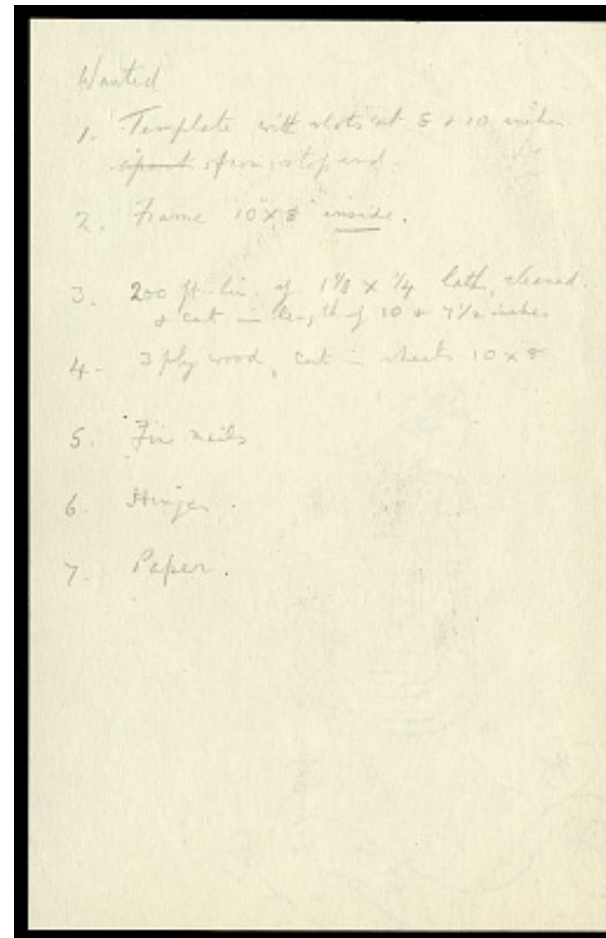 Wanted
1. Template with slots at 8 + 10 inches
apart from stop end.
2. Frame 10" x 8" inside.
3. 200 ft. lin. of 1 1/8 x 1/4 lath, cleaned.
+ cut in length of 10 + 7 1/2 inches
4. 3 ply wood, cut in sheets 10 x 8
5. Fine nails
6. Hinges.
7. Paper.